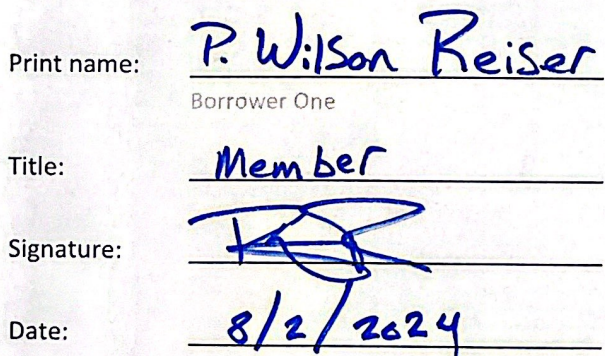 Print name: P. Wilson Reiser
Borrower One
Title: Member
Signature:
Date: 8/2/2024